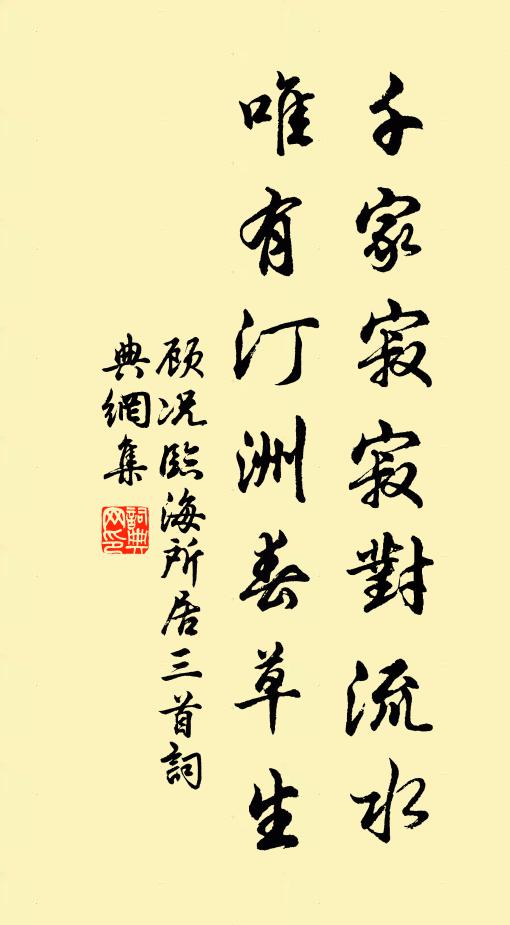 千家寂寂對流水
唯有汀洲春草生
顾况臨海所居三首詞
典網集
詞典网印